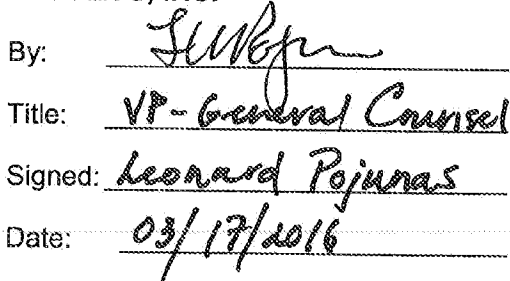 By:
Title: VP - General Counsel
Signed: Leonard Pojunas
Date: 03/17/2016